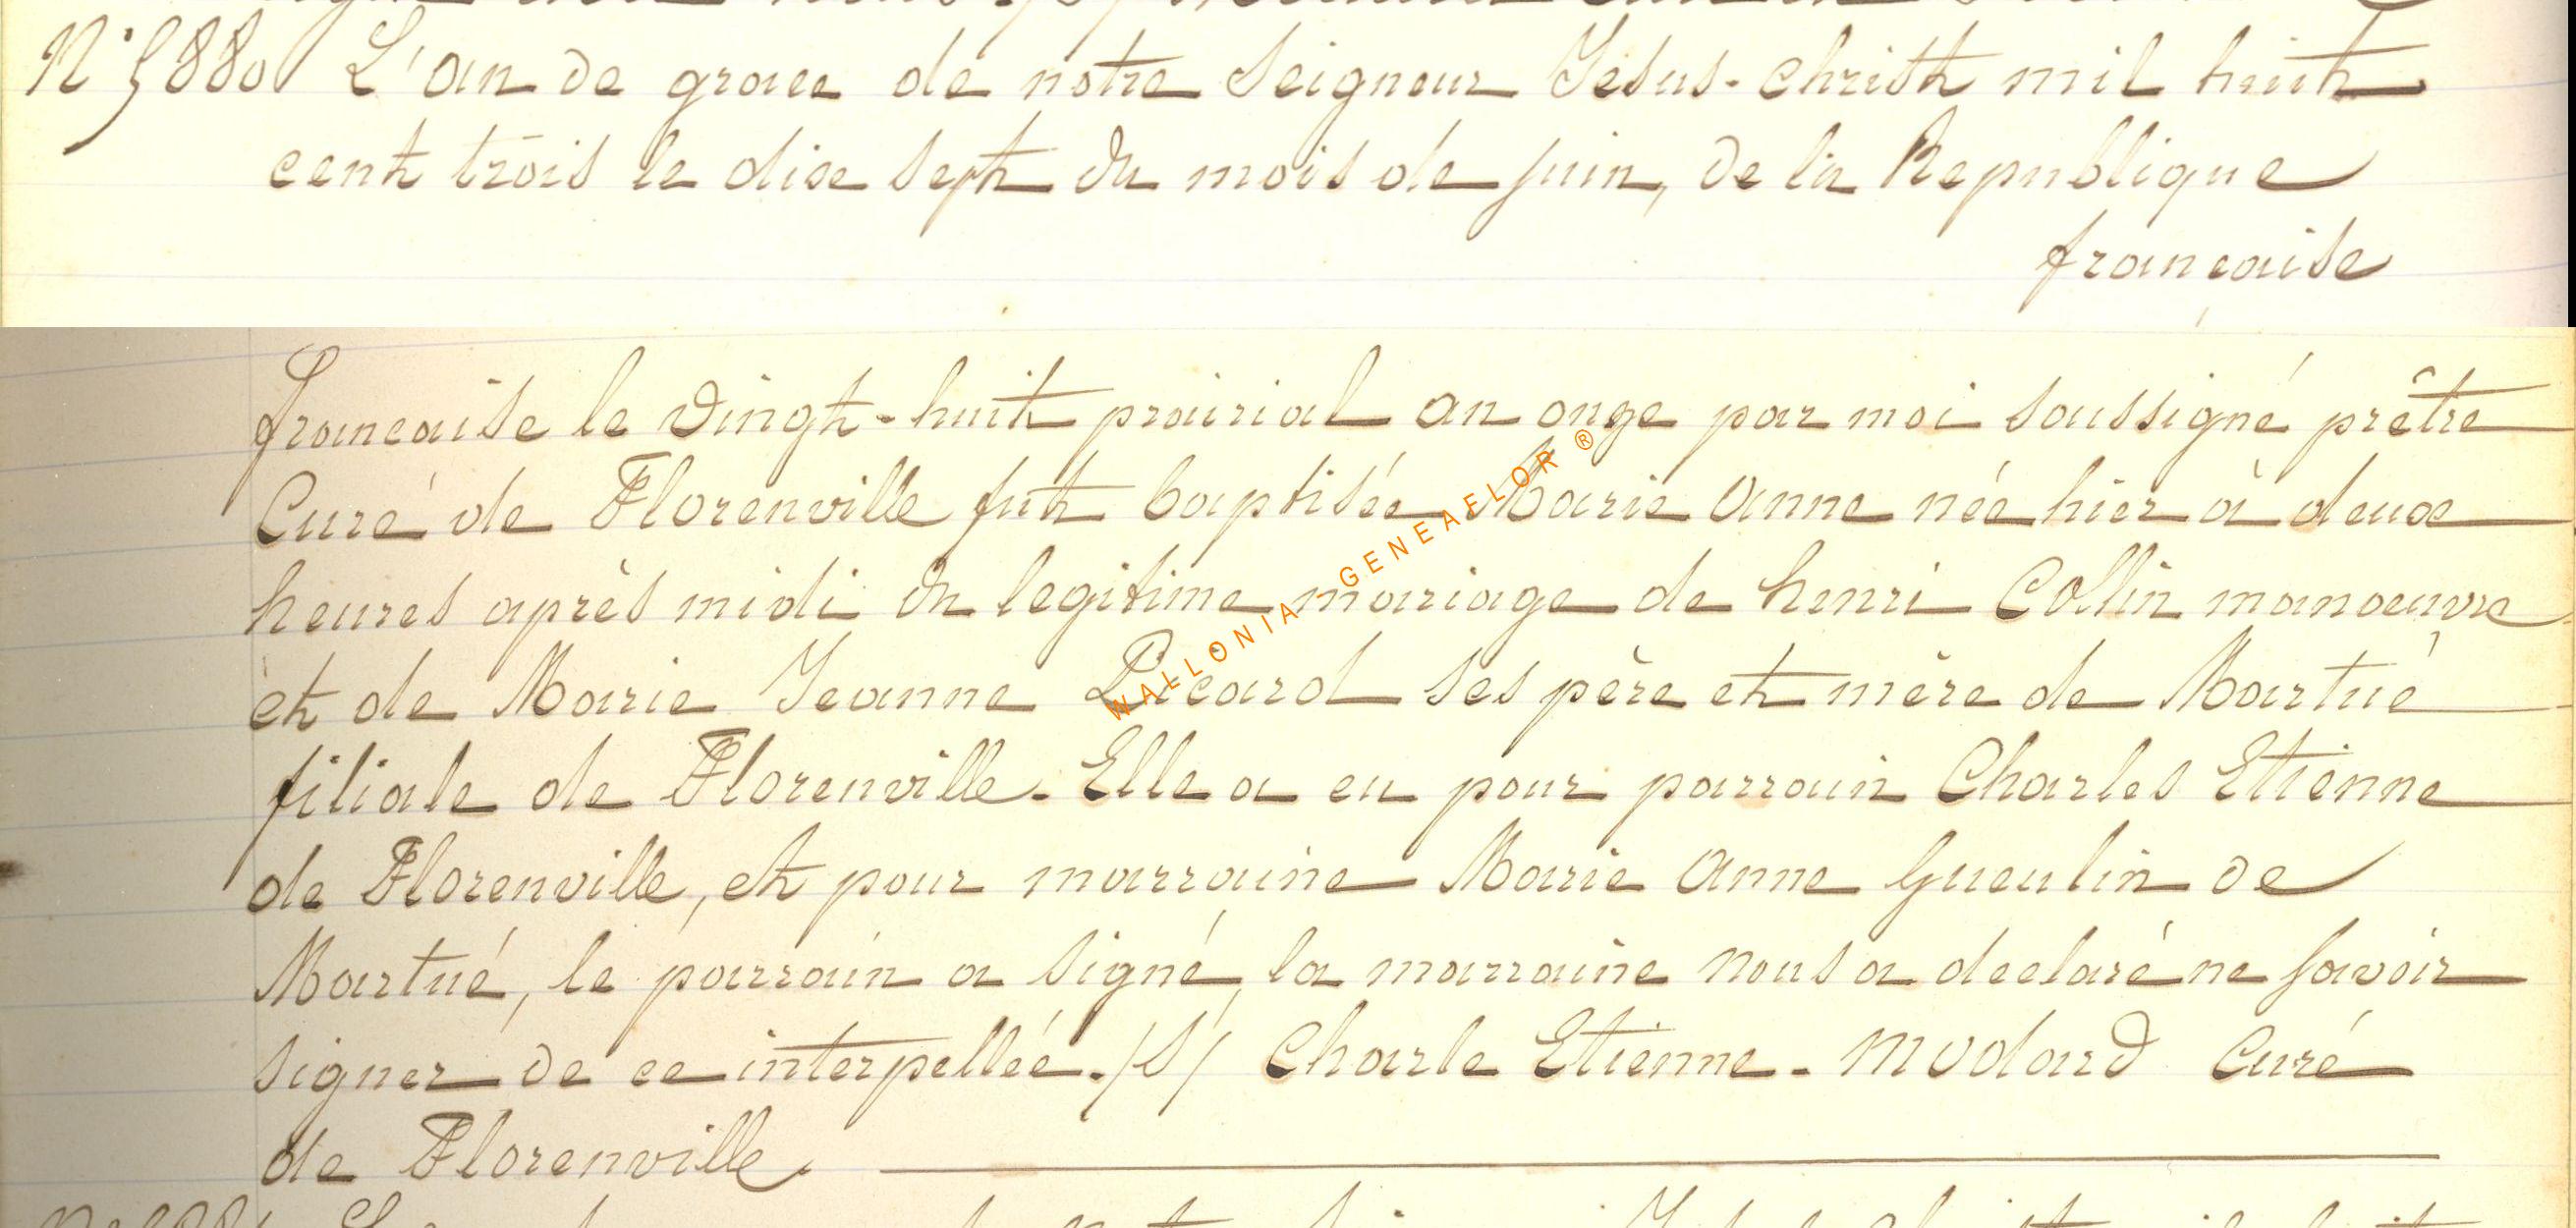 N° 5880 L'an de grace de notre Seigneur Jesus-christ mil huit
cent trois le dixe sept du mois de juin, de la Republique
francaise
francaise le vingt-huit prairial an onze par moi soussigné prêtre
Curé de Florenville fut baptisée Marie Anne née hier à deux
heures après midi du legitime mariage de henri Collin manoeuvre
et de Marie Jeanne Picard ses père et mère de Martué
filiale de Florenville. Elle a eu pour parrain Charles Etienne
de Florenville, et pour marraine Marie Anne Gueulin de
Martué, le parrain a signé, la marraine nous a declaré ne savoir
signer de ce interpellée. /S/ Charle Etienne. Modard Curé
de Florenville.
WALLONIA GENEAFLOR ®